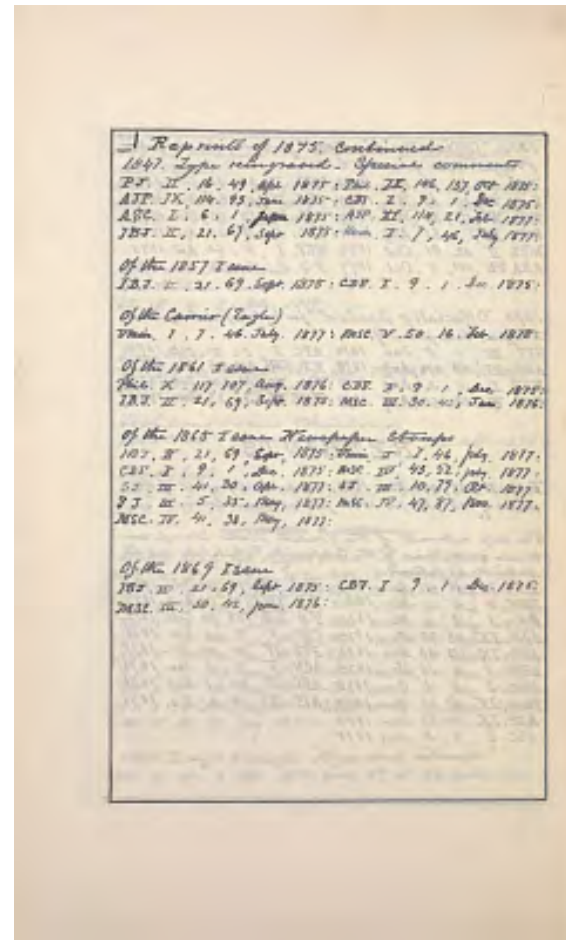 Reprints of 1875. Continued
1847. Type reengraved. Special comments
P.J. II. 16. 49, Apr. 1875: Phil. IX, 146, 137, Oct 1875:
AJP. IX, 104. 93, June 1875: CBT. I. 9. 1. Dec 1875:
ASC. I. 6. 1. 1875: AJP XI, 114, 21, Feb. 1877:
IBJ. II, 21. 69, Sept 1875: I. 7, 46, July 1877:
Of the 1857 Issue
IBJ. II. 21. 69. Sept. 1875: CBT. I. 9. 1. Dec. 1875:
Of the Carrier (Eagle)
I. 7. 46. July. 1877: MSC. V. 50. 16. Feb. 1878:
Of the 1861 Issue
Phil. X. 117, 107, Aug. 1876: CBT. I. 9. 1. Dec. 1875:
IBJ. II. 21, 69, Sept. 1875: MSC. III. 30. 42, Jan. 1876:
Of the 1865 Issue Newspaper Stamps
IBJ. II. 21, 69 Sept. 1875: I 7, 46, July, 1877:
CBT. I. 9. 1. Dec. 1875: MSC. IV. 43, 52, July, 1877:
III. 41, 30, Apr. 1877: III. 10, 77, Oct. 1877:
P.J. III. 5, 35, May, 1877: MSC. IV. 47, 87, Nov. 1877.
MSC. IV. 41, 38, May, 1877:
Of the 1869 Issue
IBJ. II. 21. 69, Sept. 1875: CBT. I. 9. 1. Dec. 1875:
MSC. III. 30. 42, Jan. 1876: